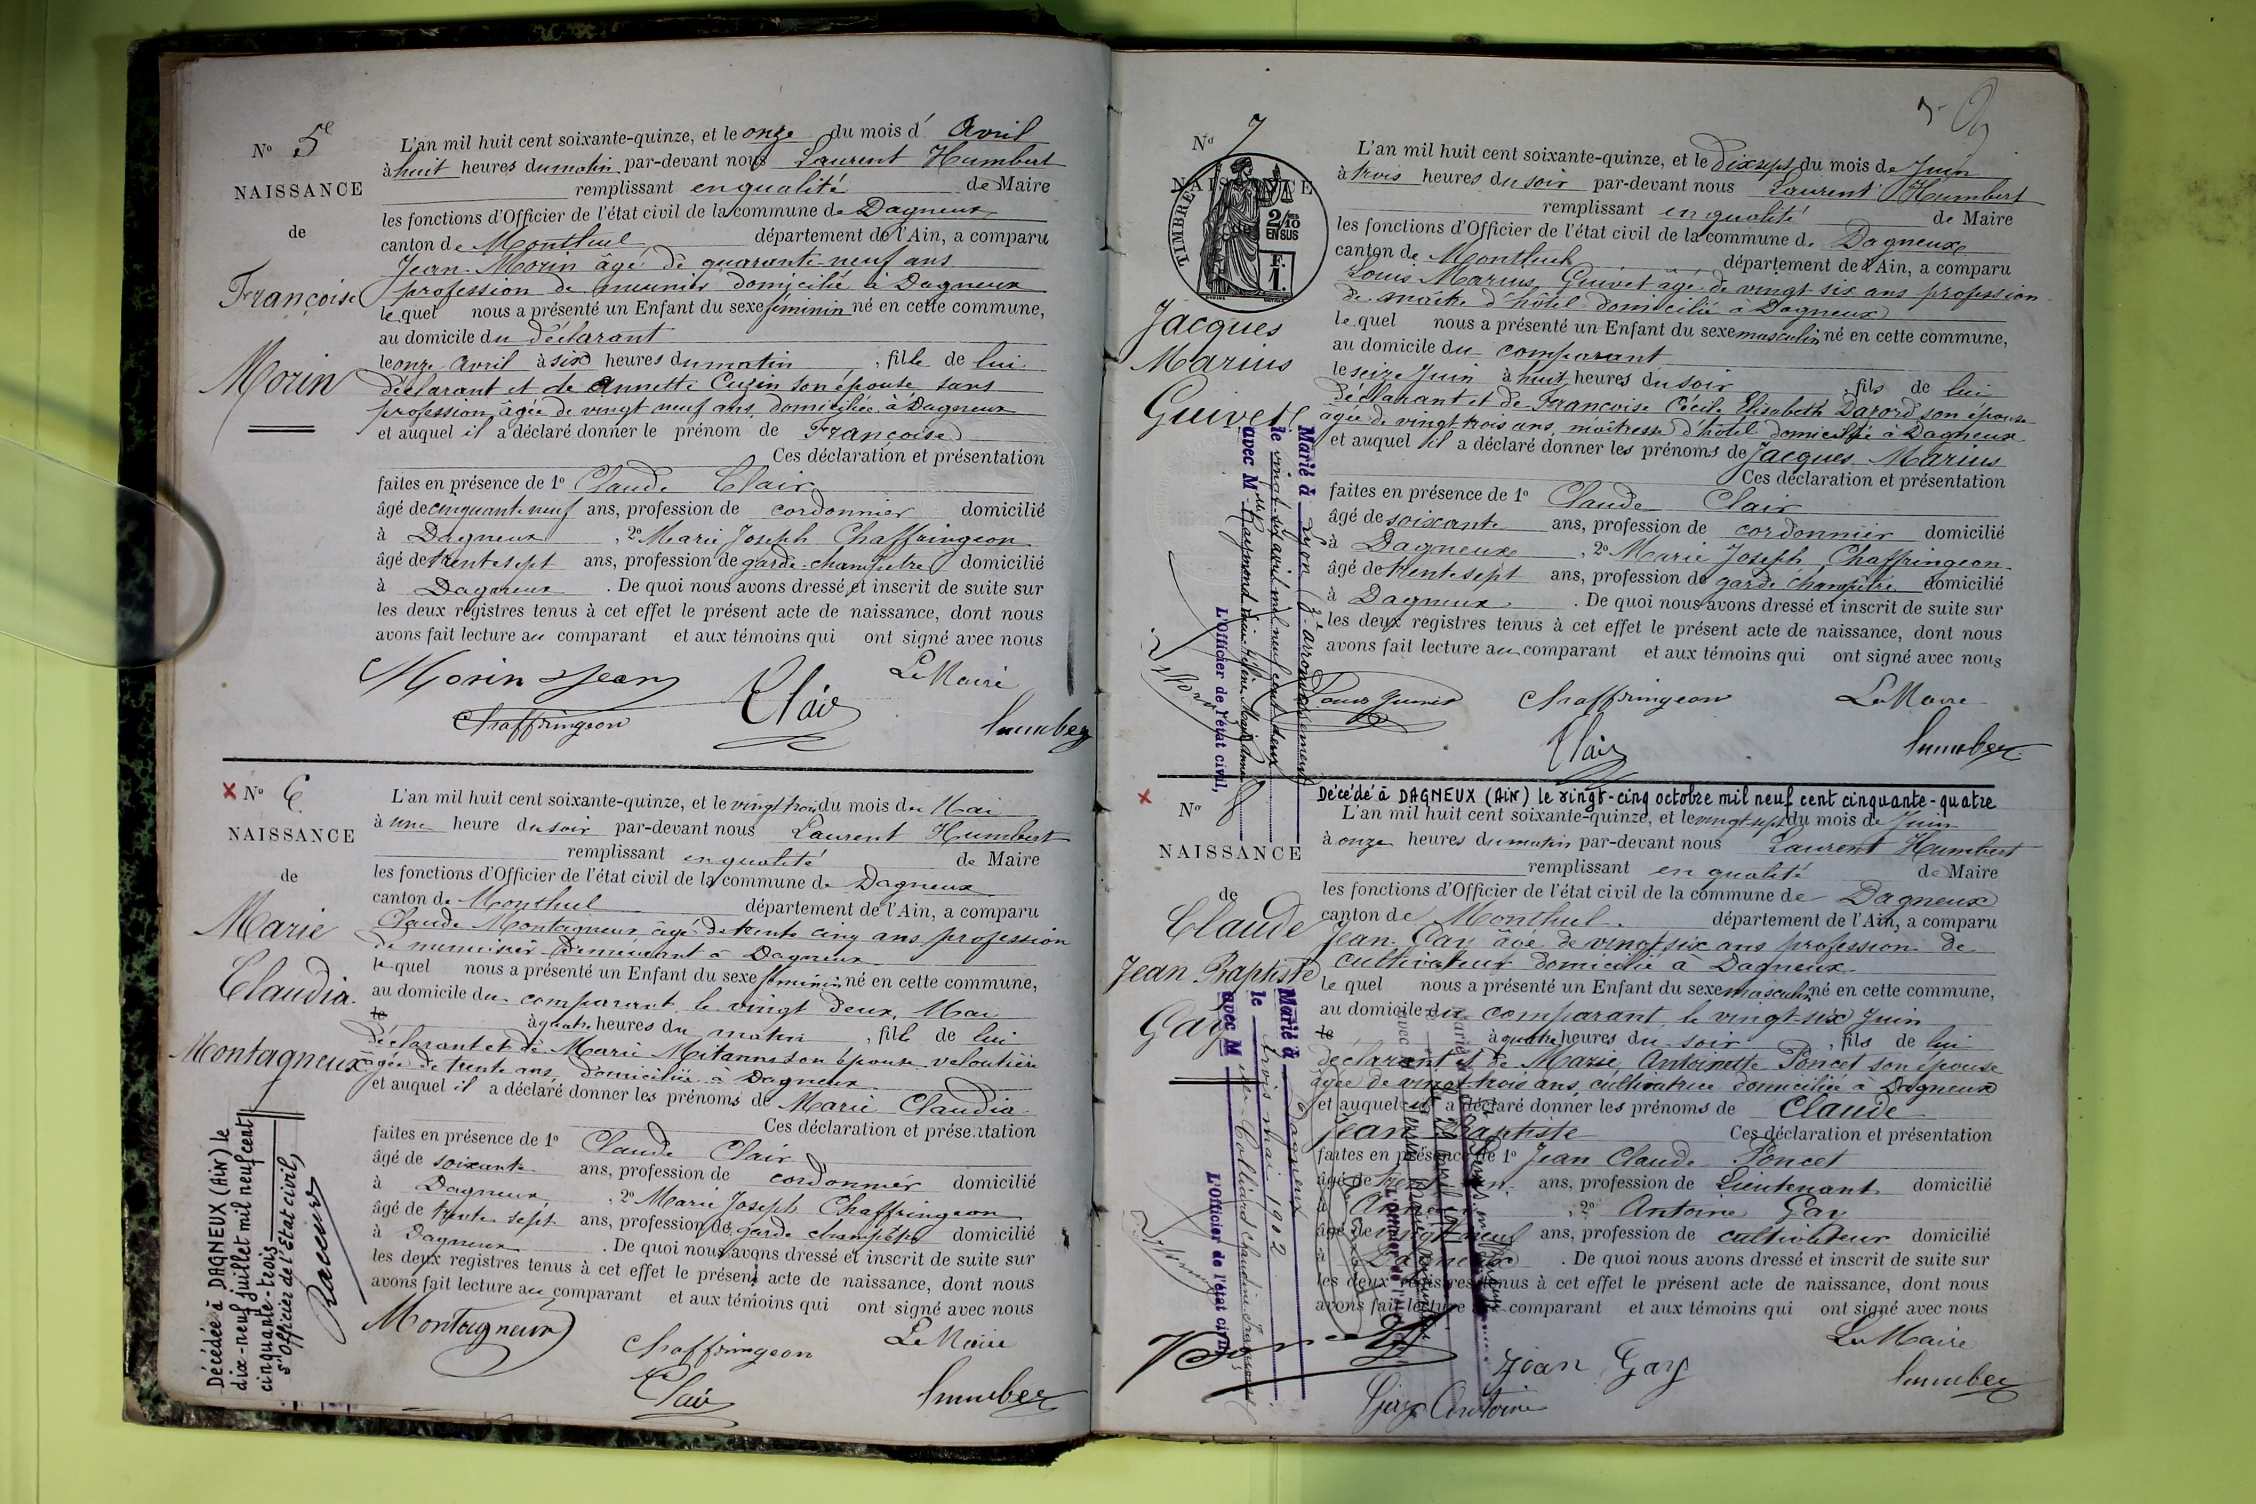 Nº 5
NAISSANCE
de
Françoise
Morin
L'an mil huit cent soixante-quinze, et le onze du mois d' Avril
à huit heures du matin par-devant nous Laurent Humbert
remplissant en qualité de Maire
les fonctions d'Officier de l'état civil de la commune de Dagneux
canton de Montluel département de l'Ain, a comparu
Jean Morin âgé de quarante neuf ans
profession de meunier domicilié à Dagneux
lequel nous a présenté un Enfant du sexe féminin né en cette commune,
au domicile du déclarant
le onze avril à six heures du matin, fille de lui
déclarant et de Annette Cuzin son épouse sans
profession, âgée de vingt neuf ans, domiciliée à Dagneux
et auquel il a déclaré donner le prénom de Françoise
Ces déclaration et présentation
faites en présence de 1º Claude Clair
âgé de cinquante neuf ans, profession de cordonnier domicilié
à Dagneux, 2º Marie Joseph Chaffringeon
âgé de trente sept ans, profession de garde-champêtre domicilié
à Dagneux. De quoi nous avons dressé et inscrit de suite sur
les deux registres tenus à cet effet le présent acte de naissance, dont nous
avons fait lecture au comparant et aux témoins qui ont signé avec nous
Morin Jean Clair Le Maire
Chaffringeon Humbert
Nº 6
NAISSANCE
de
Marie
Claudia
Montagneux
L'an mil huit cent soixante-quinze, et le vingt trois du mois de Mai
à une heure du soir par-devant nous Laurent Humbert
remplissant en qualité de Maire
les fonctions d'Officier de l'état civil de la commune de Dagneux
canton de Montluel département de l'Ain, a comparu
Claude Montagneux âgé de trente cinq ans profession
de menuisier demeurant à Dagneux
lequel nous a présenté un Enfant du sexe féminin né en cette commune,
au domicile du comparant le vingt deux Mai
le à quatre heures du matin, fille de lui
déclarant et de Marie Mitanne son épouse veloutière
âgée de trente ans domiciliée à Dagneux
et auquel il a déclaré donner les prénoms de Marie Claudia
Ces déclaration et présentation
faites en présence de 1º Claude Clair
âgé de soixante ans, profession de cordonnier domicilié
à Dagneux, 2º Marie Joseph Chaffringeon
âgé de trente sept ans, profession de garde champêtre domicilié
à Dagneux. De quoi nous avons dressé et inscrit de suite sur
les deux registres tenus à cet effet le présent acte de naissance, dont nous
avons fait lecture au comparant et aux témoins qui ont signé avec nous
Montagneux Chaffringeon Le Maire
Clair Humbert
Décédée à DAGNEUX (Ain) le
dix-neuf juillet mil neuf cent
cinquante-trois
s/ Officier de l'Etat civil,
Nº 7
NAISSANCE
TIMBRE
2/10
EN SUS
F.
1.
Jacques
Marius
Guivet
L'an mil huit cent soixante-quinze, et le dix sept du mois de Juin
à trois heures du soir par-devant nous Laurent Humbert
remplissant en qualité de Maire
les fonctions d'Officier de l'état civil de la commune de Dagneux
canton de Montluel département de l'Ain, a comparu
Louis Marius Guivet âgé de vingt six ans profession
de maître d'hôtel domicilié à Dagneux
lequel nous a présenté un Enfant du sexe masculin né en cette commune,
au domicile du comparant
le seize Juin à huit heures du soir, fils de lui
déclarant et de Françoise Cécile Elisabeth Darord son épouse
âgée de vingt trois ans, maîtresse d'hôtel domiciliée à Dagneux
et auquel il a déclaré donner les prénoms de Jacques Marius
Ces déclaration et présentation
faites en présence de 1º Claude Clair
âgé de soixante ans, profession de cordonnier domicilié
à Dagneux, 2º Marie Joseph Chaffringeon
âgé de trente sept ans, profession de garde champêtre domicilié
à Dagneux. De quoi nous avons dressé et inscrit de suite sur
les deux registres tenus à cet effet le présent acte de naissance, dont nous
avons fait lecture au comparant et aux témoins qui ont signé avec nous
Louis Guivet Chaffringeon Le Maire
Clair Humbert
Marié à Lyon 3e arrondissement
le vingt six avril mil neuf cent deux
avec Mlle Raymond
L'Officier de l'état civil,
Nº
NAISSANCE
de
Claude
Jean Baptiste
Gay
Décédé à DAGNEUX (Ain) le vingt-cinq octobre mil neuf cent cinquante-quatre
L'an mil huit cent soixante-quinze, et le vingt-sept du mois de Juin
à onze heures du matin par-devant nous Laurent Humbert
remplissant en qualité de Maire
les fonctions d'Officier de l'état civil de la commune de Dagneux
canton de Montluel département de l'Ain, a comparu
Jean Gay âgé de vingt six ans profession de
cultivateur domicilié à Dagneux
lequel nous a présenté un Enfant du sexe masculin né en cette commune,
au domicile du comparant le vingt-six Juin
le à quatre heures du soir, fils de lui
déclarant et de Marie Antoinette Poncet son épouse
âgée de vingt trois ans, cultivatrice domiciliée à Dagneux
et auquel il a déclaré donner les prénoms de Claude
Jean Baptiste Ces déclaration et présentation
faites en présence de 1º Jean Claude Poncet
âgé de ans, profession de Lieutenant domicilié
à 2º Antoine Gay
âgé de vingt neuf ans, profession de cultivateur domicilié
à Dagneux. De quoi nous avons dressé et inscrit de suite sur
les deux registres tenus à cet effet le présent acte de naissance, dont nous
avons fait lecture au comparant et aux témoins qui ont signé avec nous
Le Maire
Jean Gay Humbert
Gay Antoine
Marié à Dagneux
le trois mai 1902
avec Mlle Colliard Claudine
L'Officier de l'état civil,